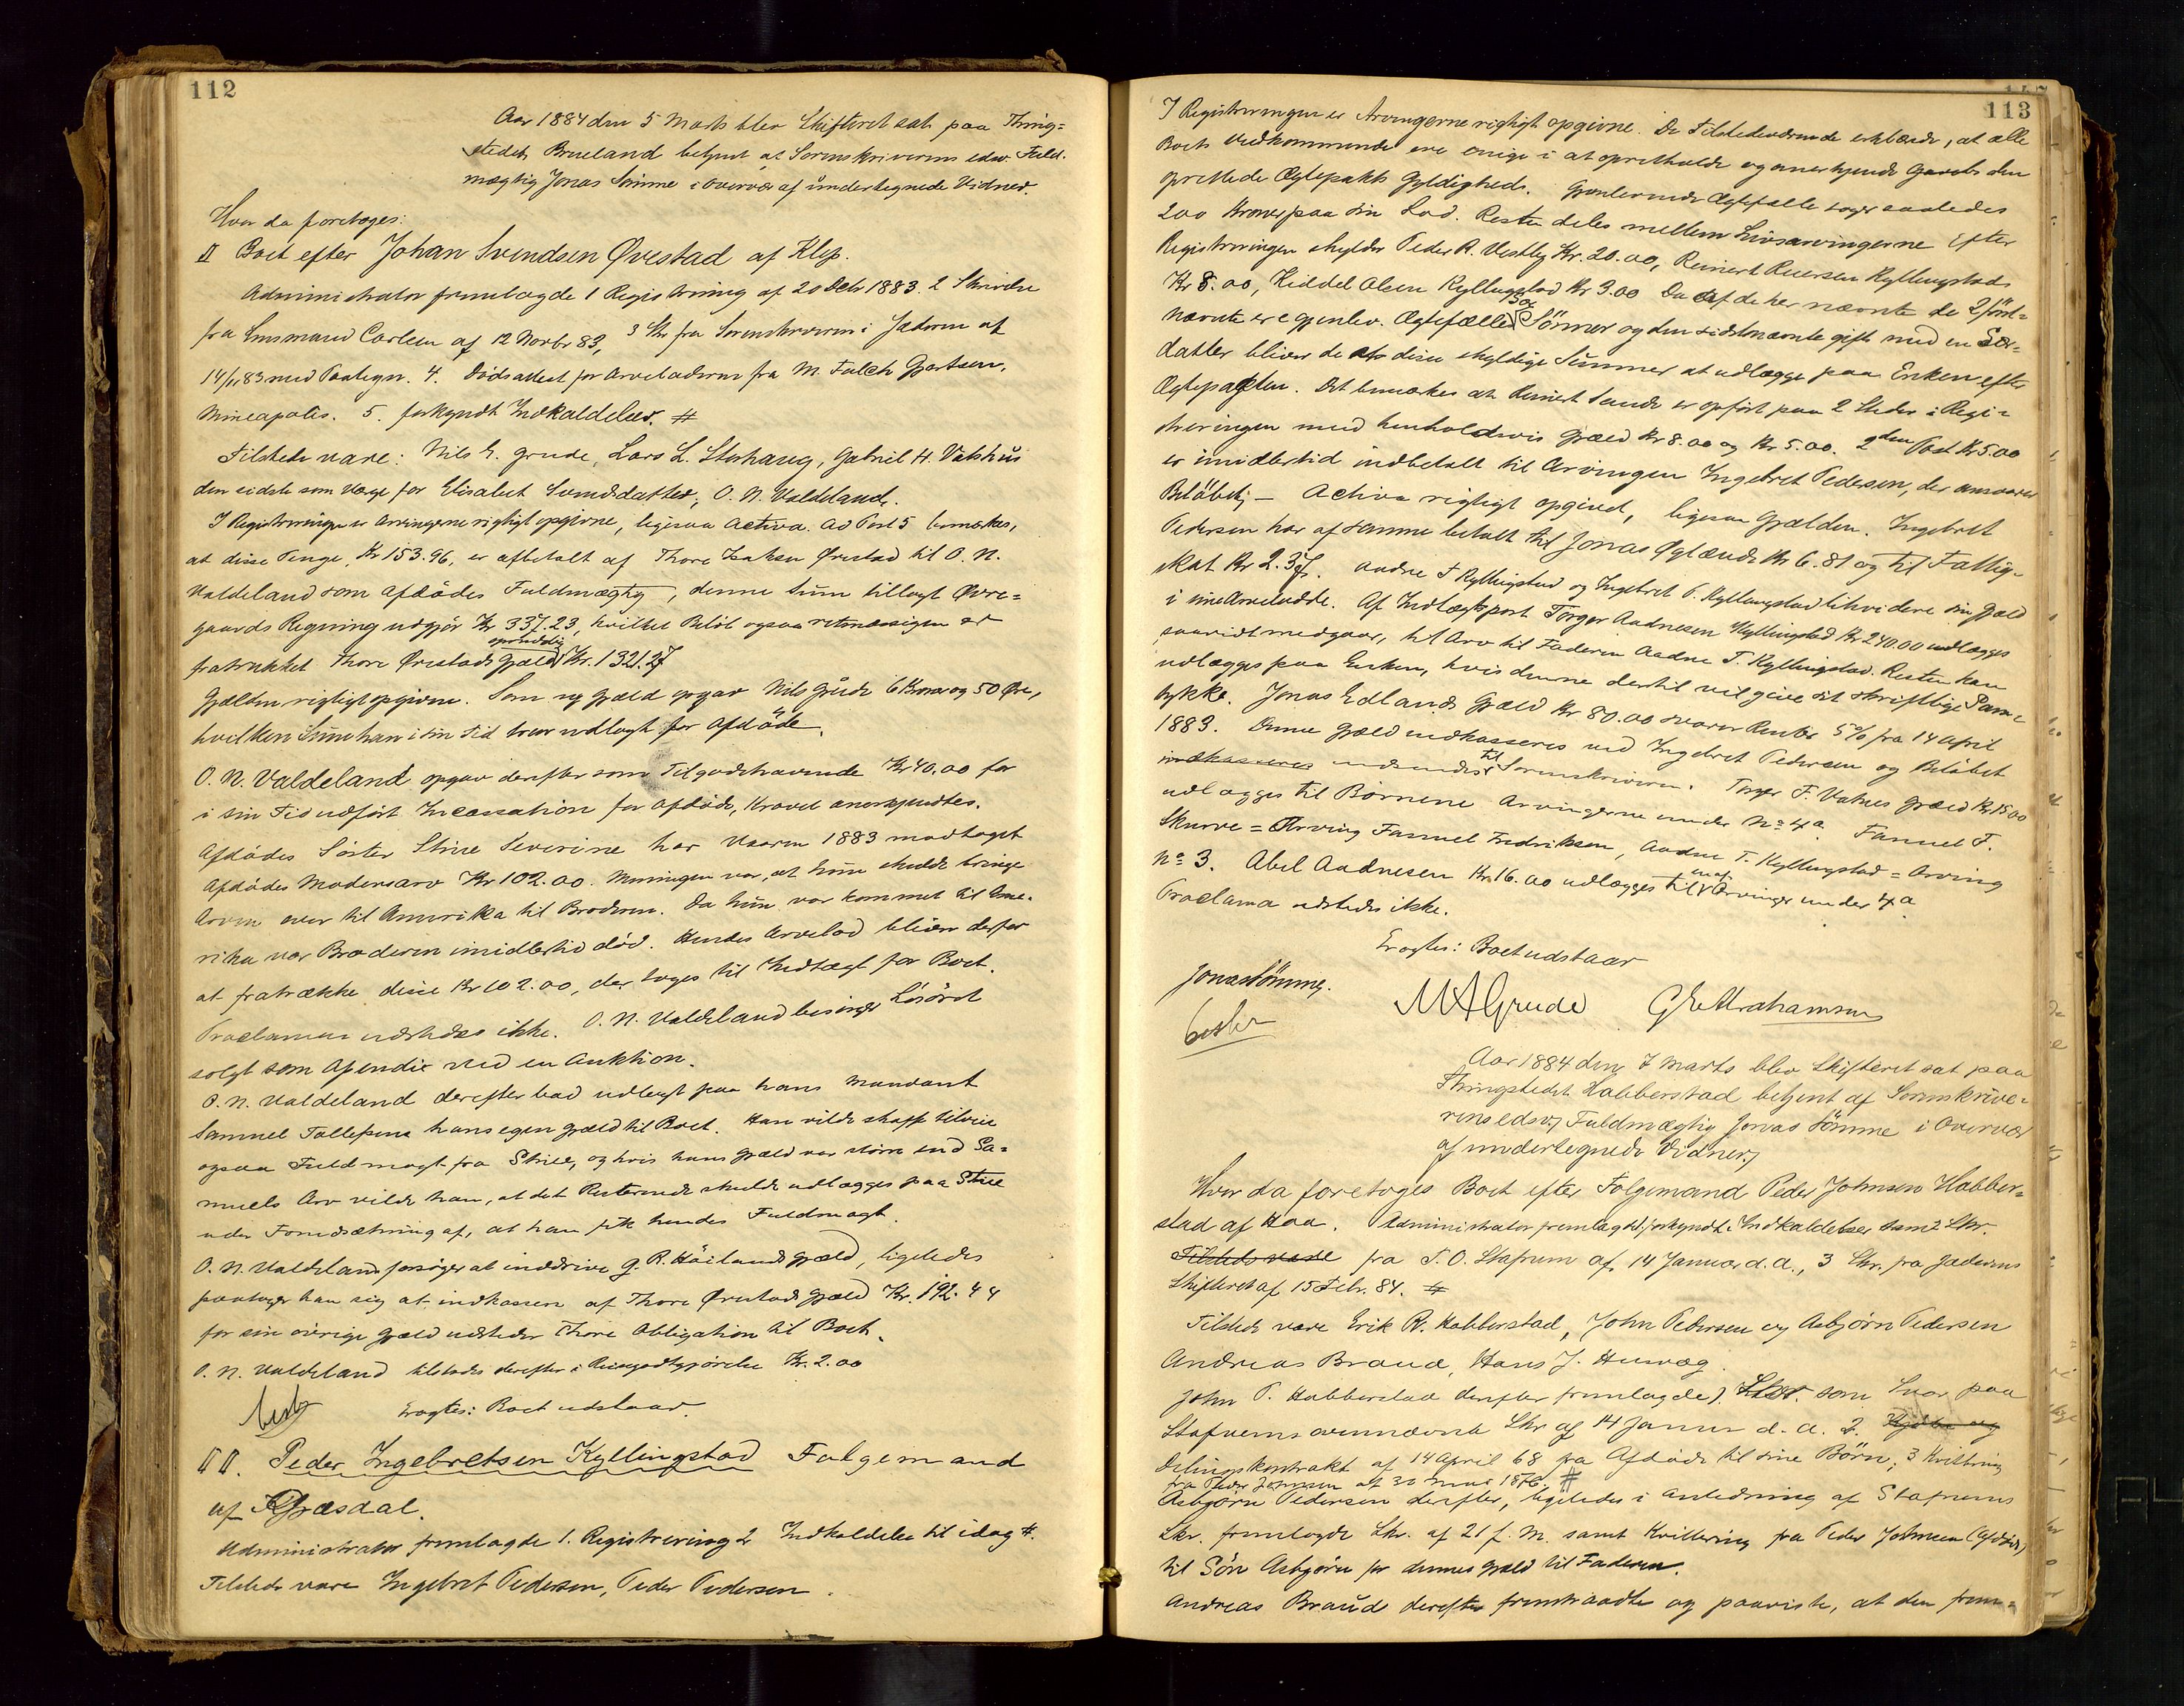 112
Aar 1884 den 5 Marts blev Skifteret sat paa Thing-
stedet Brueland betjent af Sorenskriverens edsv. Fuld-
mægtig Jonas Sömme i Overvær af undertegnede Vidner.
Hvor da foretoges:
I Boet efter Johan Svendsen Ørestad af Klep.
Administrator fremlagde 1 Registrering af 20 Debr 1883. 2 Skrivelse
fra Carlsen af 12 Novbr 83, 3 Skr fra Sorenskriveren i Jæderen af
14/11 83 med Paategn. 4. Dödsattest for Arveladeren fra M. Falch Gjertsen,
Mineapolis. 5. forkyndt Indkaldelse. #
Tilstede vare: Nils E. Grude, Lars L. Storhaug, Gabriel H. Vatshus
den sidste som Værge for Elisabet Svendsdatter, O. N. Valdeland.
I Registreringen er Arvingerne rigtigt opgivne, ligesaa Activa. Ad Post 5 bemærkes,
at disse Penge, Kr 153.96, er afbetalt af Thore Isaksen Ørestad til O. N.
Valdeland som Afdödes Fuldmægtig, denne Sum tillagt Øvre-
gaards Regning udgjør Kr 337.23, hvilket Beløb ogsaa retmæssigen er
fratrukket Thore Ørestads oprindelig Gjæld Kr. 1321.27
Gjælden rigtigt opgivne. Som ny Gjæld opgav Nils Grude 6 Kroner og 50 Øre,
hvilken Sum han i sin Tid har udlagt for Afdöde.
O. N. Valdeland opgav derefter som Tilgodehavende Kr 40.00 for
i sin Tid udfört Incassation for Afdöde, Kravet anerkjendtes.
Afdödes Söster Stine Severine har Vaaren 1883 modtaget
Afdödes Modersarv Kr 102.00. Meningen var, at hun skulde bringe
Arven over til Amerika til Broderen. Da hun var kommet til Ame-
rika var Broderen imidlertid död. Hendes Arvelod bliver derfor
at fratrække disse Kr 102.00, der toges til Indtægt for Boet.
Proclama udstedes ikke. O. N. Valdeland besørger Lösöret
solgt som Apendix ved en Auktion.
O. N. Valdeland derefter bad udlagt paa hans Mandant
Samuel Tollefsens hans egen Gjæld til Boet. Han vilde skaffe tilveie
ogsaa Fuldmagt fra Stine, og hvis hans Gjæld var större end Sa-
muels Arv vilde han, at det Resterende skulde udlægges paa Stine
under Forudsætning af, at han fik hendes Fuldmagt.
O. N. Valdeland forsøger at inddrive G. R. Höilands Gjæld, ligeledes
paatager han sig at indkassere af Thore Ørestads Gjæld Kr. 192.44
for sin øvrige Gjæld udsteder Thore Obligation til Boet.
O. N. Valdeland tilstodes derefter i Reisegodtgjörelse Kr. 2.00
Eragtes: Boet udstaar.
II. Peder Ingebretsen Kyllingstad Folgemand
af Gjæsdal.
Administrator fremlagde 1. Registrering 2 Indkaldelse til idag #.
Tilstede vare Ingebret Pedersen, Peder Pedersen.
113
I Registreringen er Arvingerne rigtigt opgivne. De Tilstedeværende erklærede, at alle
Boets Vedkommende ere enige i at opretholde og anerkjende Gavels den
oprettede Ægtepakts Gyldighed. Gjenlevende Ægtefælle tager saaledes
200 Kroner paa sin Lod. Resten deles mellem Livsarvingerne. Efter
Registreringen skylder Peder R. Vestly Kr. 20.00, Reinert Reiersen Kyllingstad
Kr 8.00, Kiddel Olsen Kyllingstad Kr 3.00 Da af de her nævnte de 2 först-
nævnte ere gjenlev. Ægtefælles Sær Sönner og den sidstnævnte gift med en Sær-
datter bliver de disse skyldige Summer at udlægge paa Enken efter
Ægtepagten. Det bemærkes at Reinert Sande er opfört paa 2 Steder i Regi-
streringen med henholdsvis Gjæld Kr 8.00 og Kr 5.00. 2den Post Kr 5.00
er imidlertid indbetalt til Arvingen Ingebret Pedersen, der ansvarer
Belöbet; – Activa rigtigt opgivet, ligesaa Gjælden. Ingebret
Pedersen har af samme betalt til Jonas Øglænde Kr 6.81 og til Fattig-
skat Kr 2.37. Aadne T Kyllingstad og Ingebret P. Kyllingstad likvidere sin Gjæld
i sine Arvelodde. Af Indtægtspost Torger Aadnesen Kyllingstad Kr 240.00 udlægges
saavidt medgaar, til Arv til Faderen Aadne T. Kyllingstad. Resten kan
udlægges paa Enken, hvis denne dertil vil give sit skriftlige Sam-
tykke. Jonas Edlands Gjæld Kr 80.00 svarer Renter 5% fra 14 April
1883. Denne Gjæld indkasseres ved Ingebret Pedersen og Belöbet
indkasseres indsendes til Sorenskriveren. Torger T. Vatnes Gjæld Kr 15.00
udlægges til Børnene Arvingerne under No 4a Samuel F.
Skurve = Arving Samuel Fredriksen, Aadne T. Kyllingstad = Arving
No 3. Abel Aadnesen Kr. 16.00 udlægges til en af Arvinger under 4a
Proclama udstedes ikke.
Eragtes: Boet udstaar
Jonas Sömme.
M A Grude G E Abrahamsen
Aar 1884 den 7 Marts blev Skifteret sat paa
Thingstedet Habberstad betjent af Sorenskrive-
rens edsv. Fuldmægtig Jonas Sömme i Overvær
af undertegnede Vidner.
Hvor da foretoges Boet efter Folgemand Peder Johnsen Habber-
stad af Haa. Administrator fremlagde forkyndt Indkaldelse samt 2 Skr.
Tilstede vare fra T. O. Stafrem af 14 Januar d. A., 3 Skr. fra Jæderens
Skifteret af 15 Febr. 84. #
Tilstede vare Erik R. Habberstad, John Pedersen og Asbjørn Pedersen
Andreas Braud, Hans J.
John P. Habberstad derefter fremlagde 1 Skr. som Svar paa
Stafrems ovennævnte Skr af 14 Januar d. A. 2.
Delingskontrakt af 14 April 68 fra Afdöde til sine Börn, 3 Kvittering
fra Peder Johnsen af 30 #
Asbjørn Pedersen derefter, ligeledes i Anledning af Stafrems
Skr. fremlagde Skr. af 21 f. M. samt Kvittering fra Peder Johnsen (Afdöde)
til Sön Asbjørn for dennes Gjæld til Faderen.
Andreas Braud derefter fremstaadte og paaviste, at den frem-